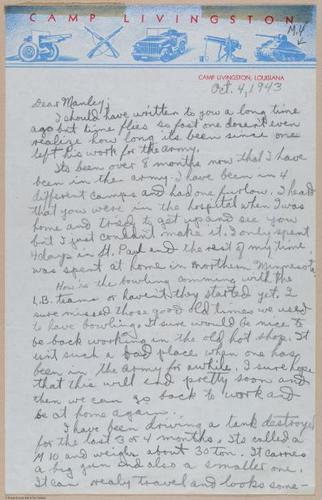 CAMP LIVINGSTON
CAMP LIVINGSTON, LOUISIANA
Oct. 4, 1943
Dear Manley;
I should have written to you a long time
ago but time flies so fast one dosen't even
realize how long its been since one
left his work for the army.
Its been over 8 months now that I have
been in the army. I have been in 4
different camps and had one furlow. I heard
that you were in the hospital when I was
home and tried to get up and see you
but I just couldn't make it. I only spent
4 days in St. Paul and the rest of my time
was spent at home in northern Minnesota.
How is the bowling comming with the
I.B. teams or haven't they started yet. I
sure missed those good old times we used
to have bowling. It sure would be nice to
be back working in the old hot shop. It
isn't such a bad place when one has
been in the Army for awhile. I sure hope
that this will end pretty soon and
then we can go back to work and
be at home again.
I have been driving a tank destroyer
for the last 3 or 4 months. Its called a
M 10 and weighs about 30 ton. It carries
a big gun and also a smaller one.
It can realy travel and looks some-